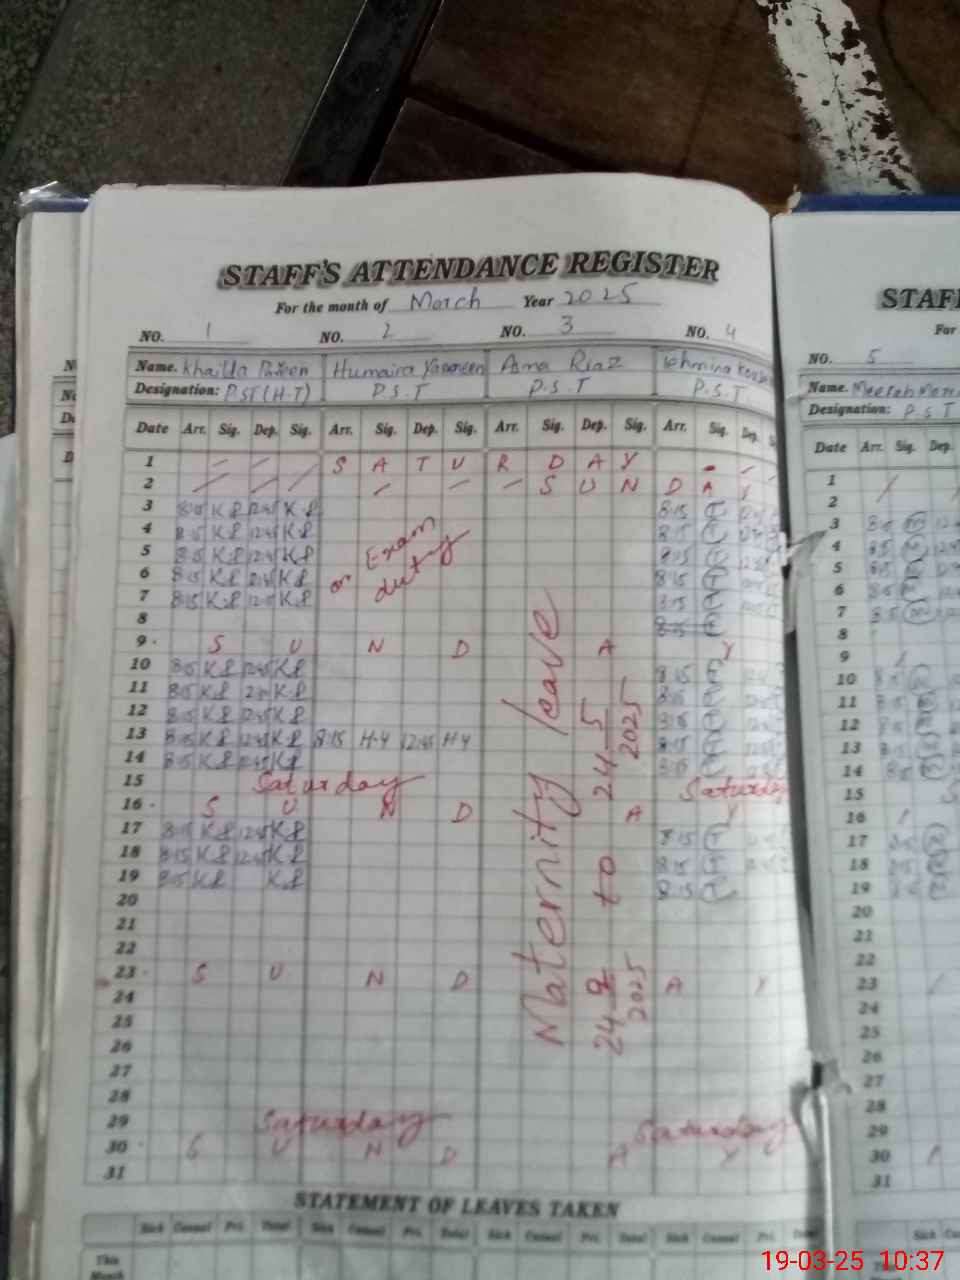 STAFF'S ATTENDANCE REGISTER
For the month of March Year 2025
NO. 1 NO. 2 NO. 3 NO. 4
Name. Khailda Humaira Asma Riaz
Designation: P.ST (H.T) P.S.T P.S.T P.S.T
Date Arr. Sig. Dep. Sig. Arr. Sig. Dep. Sig. Arr. Sig. Dep. Sig. Arr. Sig. Dep.
1 S A T U R D A Y
2 S U N D A Y
3 8:15 K.P 12:45 K.P 8:15 T
4 8:15 K.P 12:45 K.P Exam 8:15 T
5 8:15 K.P 12:45 K.P on duty 8:15 T
6 8:15 K.P 12:45 K.P 8:15 T
7 8:15 K.P 12:45 K.P 8:15 T
8 8:15
9 S U N D A Y
10 8:15 K.P 12:45 K.P 8:15 T
11 8:15 K.P K.P 8:15 T
12 8:15 K.P 12:45 K.P 8:15 T
13 8:15 K.P 12:45 K.P 8:15 H-Y 12:45 H-Y 8:15 T
14 8:15 K.P 12:45 K.P 8:15 T
15 Saturday Saturday
16 S U N D A Y
17 8:15 K.P 12:45 K.P 8:15 T
18 8:15 K.P 12:45 K.P 8:15 T
19 8:15 K.P K.P 8:15 T
20
21
22
23 S U N D A Y
24
25
26
27
28
29 Saturday Saturday
30 S U N D A Y
31
Maternity leave
24 2025 to 24 5 2025
STATEMENT OF LEAVES TAKEN
Sick Casual Pri. Total Sick Casual Pri. Total Sick Casual Pri. Total Sick Casual Pri.
This
Month
STAF
For
NO. 5
Name.
Designation: P.S.T
Date Arr. Sig. Dep.
1
2
3 8:15 M
4 8:15 M
5 8:15 M
6 8:15 M
7 8:15 M
8
9
10 8:15 M
11 8:15 M
12 8:15 M
13 8:15 M
14 8:15 M
15 S
16
17 8:15 M
18 8:15 M
19 8:15 M
20
21
22
23
24
25
26
27
28
29
30
31
Sick
19-03-25 10:37